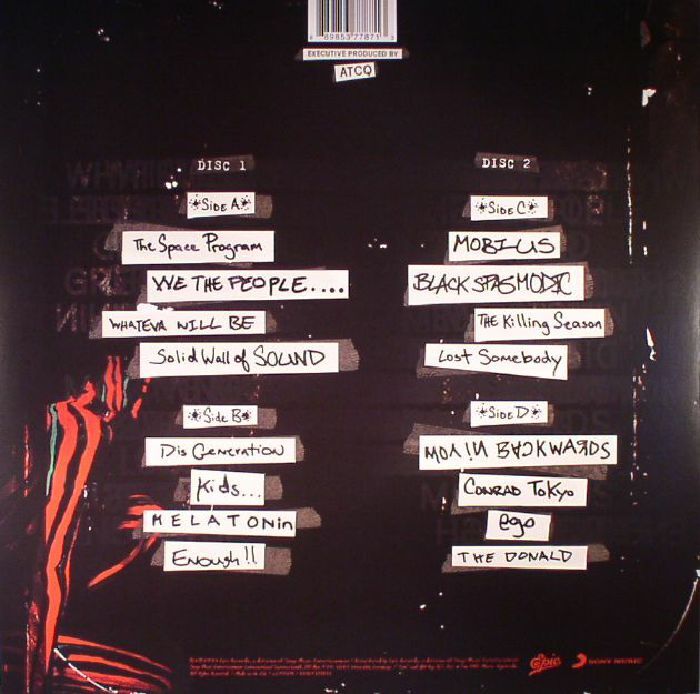 89853778713
EXECUTIVE PRODUCED BY
ATCQ
DISC 1
*SIDE A*
The Space Program
WE THE PEOPLE....
WHATEVA WILL BE
Solid Wall of SOUND
*SIDE B*
Dis Generation
Kids...
MELATONin
Enough!!
DISC 2
*SIDE C*
MOBIUS
BLACK SPASMODIC
THE Killing Season
Lost Somebody
*SIDE D*
MOVIN BACKWARDS
CONRAD TOKYO
ego
THE DONALD
Epic
SONY MUSIC